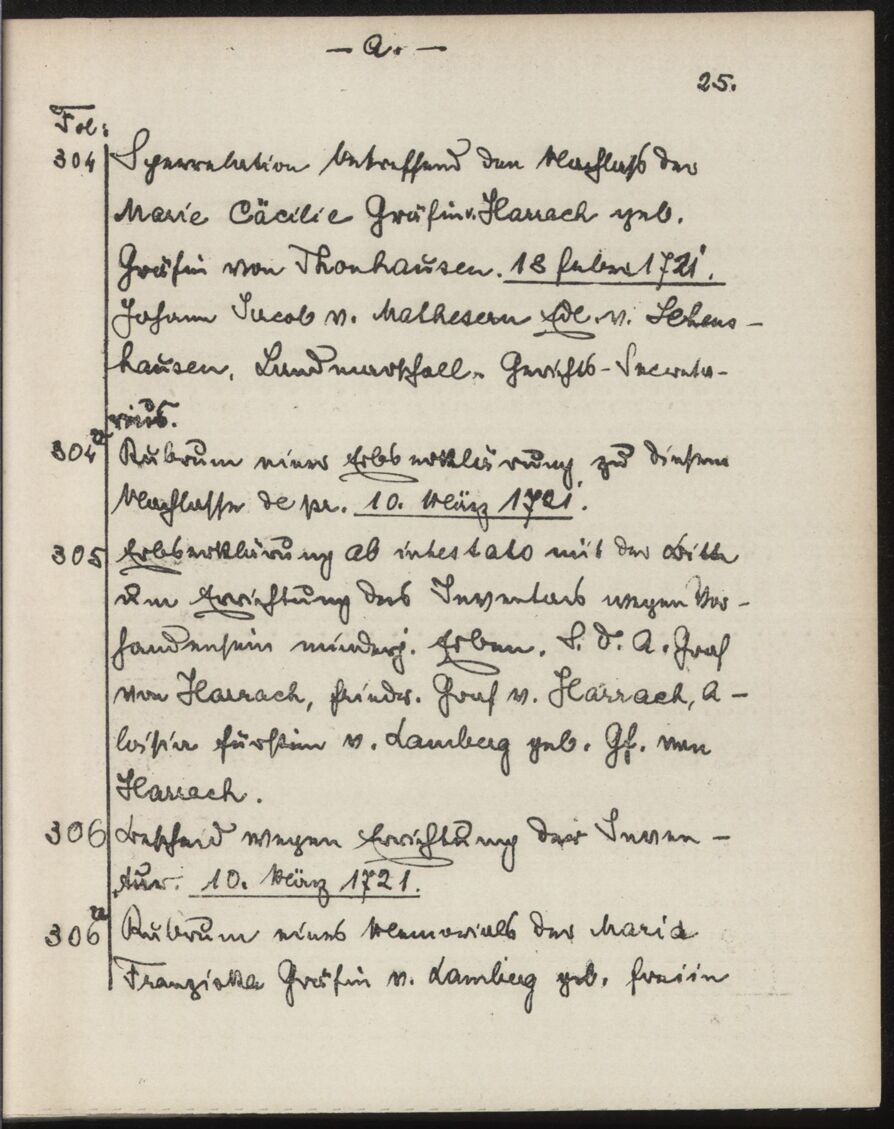 — A. —
25.
Fol:
304 Sperrelation betreffend den Nachlaß der
Marie Cäcilie Gräfin v. Harrach geb.
Gräfin von Thonhausen. 18 Feber 1721.
Johann Jacob v. Mathesern Edl. v. Lehens-
hausen, Landmarschall-Gerichts-Secreta-
rius.
304a Rubrum einer Erbserklärung zu diesem
Nachlasse de pr. 10. März 1721.
305 Erbserklärung ab intestato mit der Bitte
um Errichtung des Inventars wegen Vor-
handensein minderj. Erben. F. d. A. Graf
von Harrach, Friedr. Graf v. Harrach, A-
loisia Fürstin v. Lamberg geb. Gf. von
Harrach.
306 Bescheid wegen Errichtung der Inven-
tur. 10. März 1721.
306a Rubrum eines Memorials der Maria
Franziska Gräfin v. Lamberg geb. Freiin